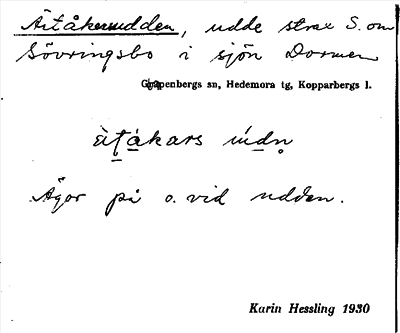 Ärtåkersudden, udde strax S. om
Sövringsbo i sjön Dormen
Garpenbergs sn, Hedemora tg, Kopparbergs l.
ä̀t̤å̤kars ú̇dn̥
Ägor på o. vid udden.
Karin Hessling 1930